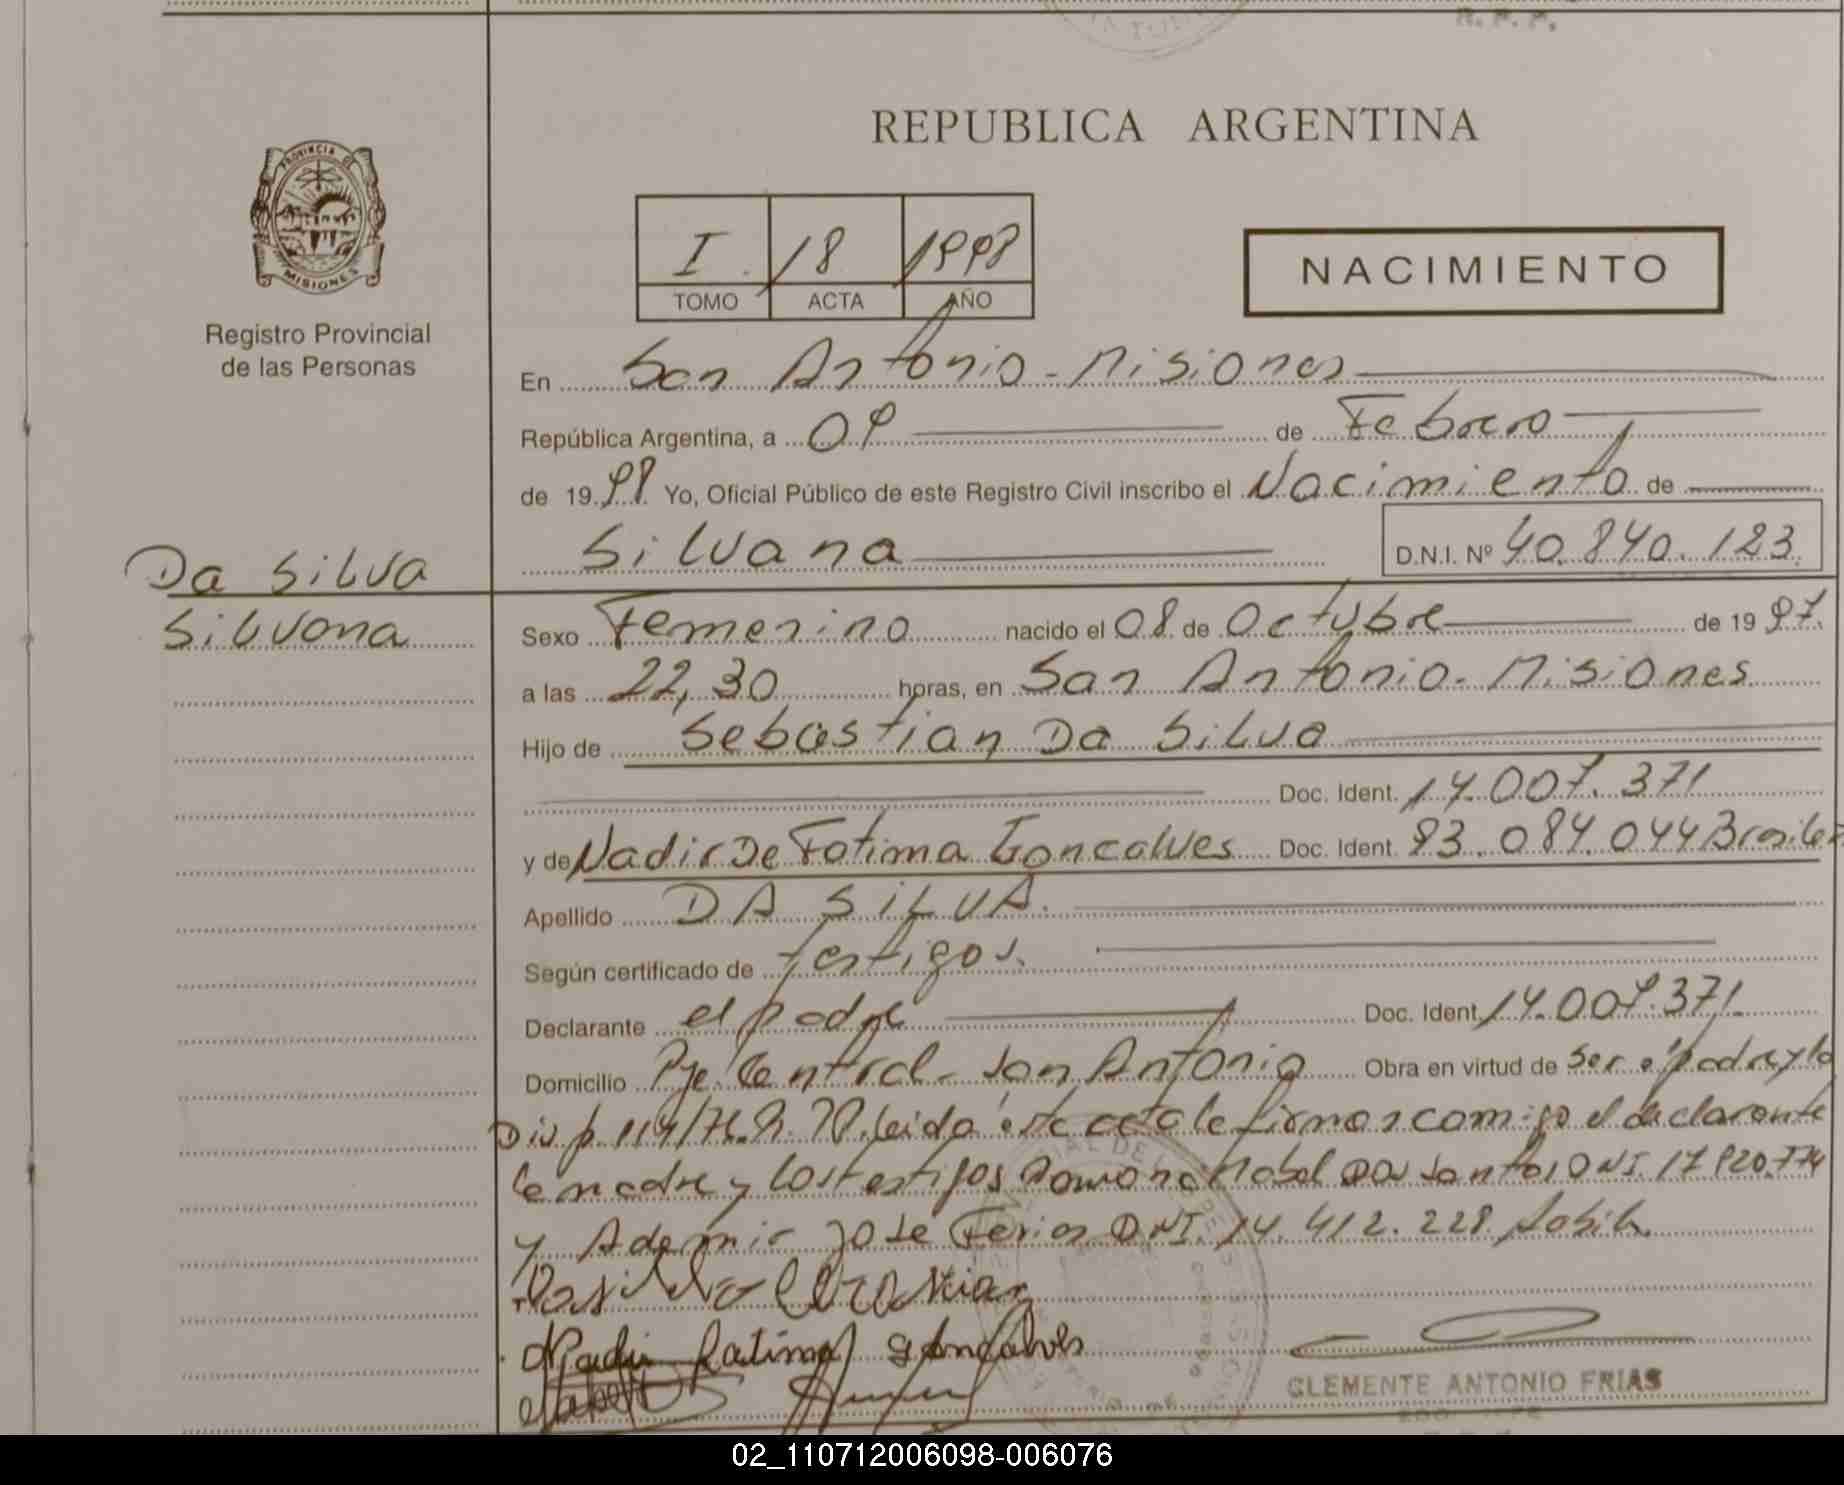 R. P. P.
REPUBLICA ARGENTINA
PROVINCIA DE
MISIONES
Registro Provincial
de las Personas
I 18 1998
TOMO ACTA AÑO
NACIMIENTO
En San Antonio - Misiones
República Argentina, a 09 de Febrero
de 19 98 Yo, Oficial Público de este Registro Civil inscribo el Nacimiento de
Silvana D.N.I. Nº 40.840.123
Da Silva
Silvana
Sexo Femenino nacido el 08 de Octubre de 19 97.
a las 22,30 horas, en San Antonio - Misiones
Hijo de Sebastian Da Silva
Doc. Ident. 14.007.371
y de Nadir De Fatima Goncalves Doc. Ident. 93.084.044 Brasileña
Apellido DA SILVA.
Según certificado de testigos.
Declarante el padre Doc. Ident. 14.007.371.
Domicilio Pje Central - San Antonio Obra en virtud de ser el padre y la
Leida esta acta la firman conmigo el declarante
la madre y los testigos Mabel Dos Santos DNI. 17.920.774
y Ademir Jose Ferias DNI. 14.412.228.
Da Silva Sebastian
Nadir Fatima Goncalves
CLEMENTE ANTONIO FRIAS
02_110712006098-006076